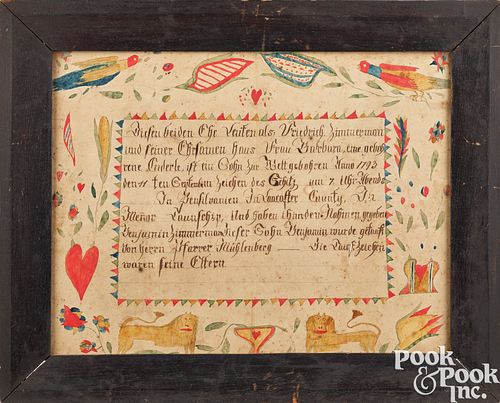 Diesen beiden Ehe Leiten als Friedrich Zimmerman
und seiner Ehrsamen Haus Frau Barbara, eine geboh
rene Enderle, ist ein Sohn Zur Welt gebohren Anno 1793
den 11 ten September Zeichen des Schitz um 7 Uhr Abends
In Pensilvanien In Lancaster County, In
Menor und haben ihm den Nahmen gegeben
Benjamin Zimmerman Dieser Sohn Benjamin wurde getauft
von herrn Pfarrer Mühlenberg — Die Zeichen
waren seine Eltern
Pook
& Pook
Inc.